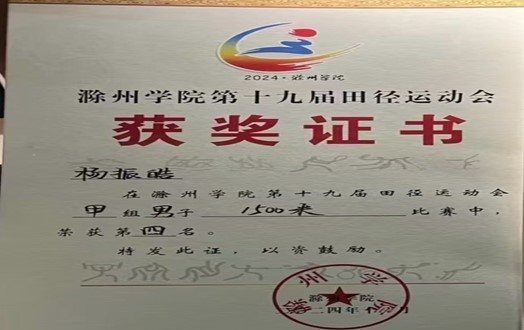 2024·滁州学院
滁州学院第十九届田径运动会
获奖证书
杨振皓
在滁州学院第十九届田径运动会
甲组男子 1500米 比赛中，
荣获第四名。
特发此证，以资鼓励。
滁州学院
二四年十 月